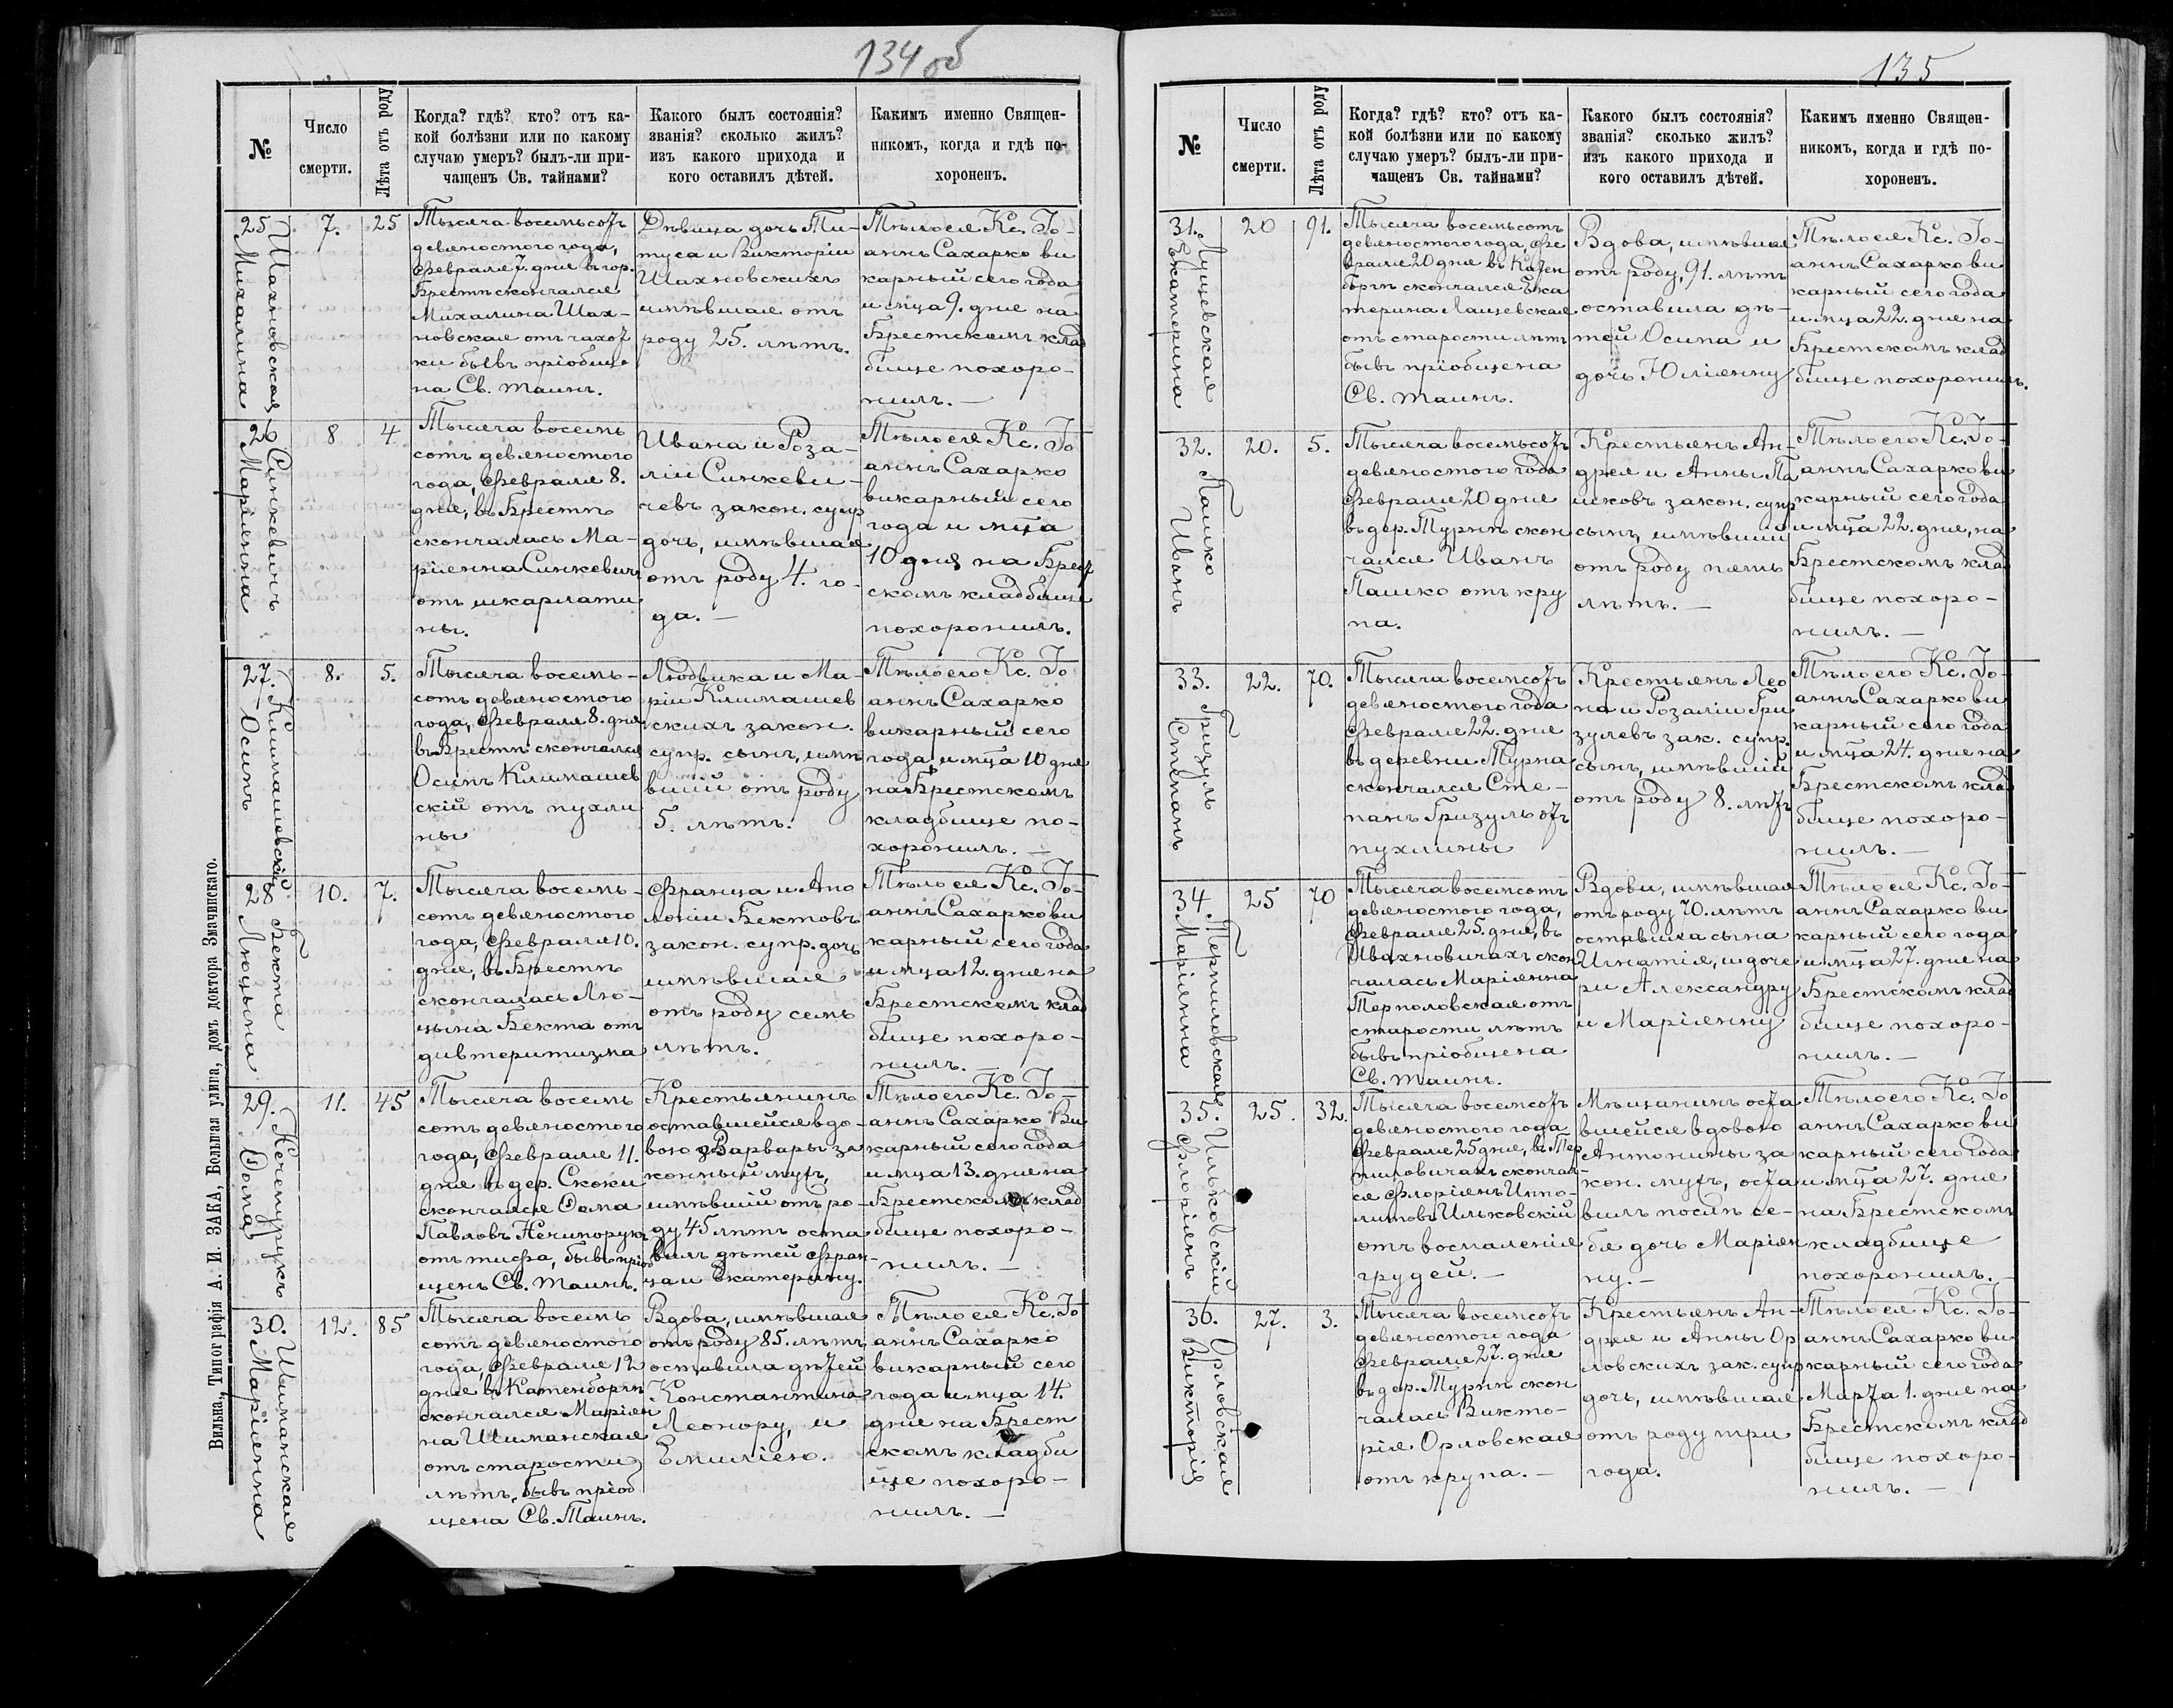 134 об
№
Число
смерти.
Лѣта отъ роду
Когда? гдѣ? кто? отъ ка-
кой болѣзни или по какому
случаю умеръ? былъ-ли при-
чащенъ Св. тайнами?
Какого былъ состоянія?
званія? сколько жилъ?
изъ какого прихода и
кого оставилъ дѣтей.
Какимъ именно Священ-
никомъ, когда и гдѣ по-
хороненъ.
25
Шахновская
Михалина
7.
25
Тысяча восемьсотъ
девяностого года,
Февраля 7. дня въ гор.
Брестѣ скончался
Михалина Шах-
новская отъ чахот
ки бывъ пріобще
на Св. таинъ.
Дѣвица дочь Ти-
туса и Викторіи
Шахновскихъ
имѣвшая отъ
роду 25. лѣтъ.
Тѣло ея Кс. Іо-
аннъ Сахарко ви
карный сего года
и мца 9. дня на
Брестскомъ клад
бище похоро-
нилъ. —
26
Синкевичъ
Маріянна
8
4
Тысяча восемь
сотъ девяностого
года, Февраля 8.
дня, въ Брестѣ
скончалась Ма-
ріянна Синкевичъ
отъ шкарлати
ны.
Ивана и Роза-
ліи Синкеви-
чевъ закон. супр
дочь, имѣвшая
отъ роду 4. го-
да. —
Тѣло ея Кс. Іо
аннъ Сахарко
викарный сего
года и мца
10 дня на Брест
скомъ кладбище
похоронилъ.
27.
Климашевскій
Осипъ
8.
5.
Тысяча восемь-
сотъ девяностого
года, Февраля 8. дня
въ Брестѣ скончался
Осипъ Климашев
скій отъ пухли
ны
Людвика и Ма-
ріи Климашев
скихъ закон.
супр. сынъ, имѣ
вшій отъ роду
5. лѣтъ.
Тѣло его Кс. Іо
аннъ Сахарко
викарный сего
года и мца 10 дня
на Брестскомъ
кладбище по-
хоронилъ. —
28
Бекта
Люцына
10.
7.
Тысяча восемь-
сотъ девяностого
года, Февраля 10.
дня, въ Брестѣ
скончалась Лю-
цына Бекта отъ
дифтеритизма
Франца и Апо
лоніи Бектовъ
закон. супр. дочь
имѣвшая
отъ роду семь
лѣтъ.
Тѣло ея Кс. Іо-
аннъ Сахарко ви
карный сего года
и мца 12. дня на
Брестскомъ клад
бище похоро-
нилъ. —
29.
Нечипурукъ
Ѳома
11.
45
Тысяча восемь
сотъ девяностого
года, Февраля 11.
дня въ дер. Скоки
скончался Ѳома
Павловъ Нечипорукъ
отъ тифа, бывъ пріоб
щенъ Св. Таинъ.
Крестьянинъ
оставшейся вдо-
вою Варвары за
конный мужъ,
имѣвшій отъ ро-
ду 45 лѣтъ оста
вилъ дѣтей Фран-
ца и Екатерину.
Тѣло его Кс. Іо-
аннъ Сахарко Ви
карный сего года
и мца 13. дня на
Брестскомъ клад
бище похоро-
нилъ. —
30.
Шиманская
Маріянна
12.
85
Тысяча восемь
сотъ девяностого
года, Февраля 12
дня въ Катенборгѣ
скончался Маріян
на Шиманская
отъ старости
лѣтъ, бывъ пріоб
щена Св. Таинъ.
Вдова, имѣвшая
отъ роду 85. лѣтъ
оставила дѣтей
Константина
Леонору, и
Емилію.
Тѣло ея Кс. Іо
аннъ Сахарко
викарный сего
года и мца 14.
дня на Брест
скомъ кладби
ще похоро-
нилъ. —
Вильна, Типографія А. И. ЗАКА, Большая улица, домъ доктора Значинскаго.
135
№
Число
смерти.
Лѣта отъ роду
Когда? гдѣ? кто? отъ ка-
кой болѣзни или по какому
случаю умеръ? былъ-ли при-
чащенъ Св. тайнами?
Какого былъ состоянія?
званія? сколько жилъ?
изъ какого прихода и
кого оставилъ дѣтей.
Какимъ именно Священ-
никомъ, когда и гдѣ по-
хороненъ.
31.
Лущевская
Екатерина
20
91.
Тысяча восемьсотъ
девяностого года, Фе
враля 20 дня въ Катен
боргѣ скончался Ека
терина Лащевская
отъ старости лѣтъ
бывъ пріобщена
Св. таинъ.
Вдова, имѣвшая
отъ роду, 91. лѣтъ
оставила дѣ-
тей Осипа и
дочь Юліянну
Тѣло ея Кс. Іо-
аннъ Сахарко ви
карный сего года
и мца 22. дня на
Брестскомъ клад
бище похоронилъ.
32.
Пашко
Иванъ
20.
5.
Тысяча восемьсотъ
девяностого года
Февраля 20 дня
въ дер. Турнѣ скон
чался Иванъ
Пашко отъ кру
па.
Крестьянъ Ан-
дрея и Анны Па
шковъ закон. супр
сынъ, имѣвшій
отъ роду пять
лѣтъ. —
Тѣло его Кс. Іо-
аннъ Сахарко ви
карный сего года
и мца 22. дня, на
Брестскомъ клад
бище похоро-
нилъ. —
33.
Гризуль
Степанъ
22.
70.
Тысяча восемсотъ
девяностого года
Февраля 22. дня
въ деревни Турна
скончался Сте-
панъ Гризуль отъ
пухлины
Крестьянъ Лео
на и Розаліи Гри
зулевъ зак. супр.
сынъ, имѣвшій
отъ роду 8. лѣтъ
Тѣло его Кс. Іо-
аннъ Сахарко ви
карный сего года
и мца 24. дня на
Брестскомъ клад
бище похоро-
нилъ. —
34
Терпиловская
Маріянна
25
70
Тысяча восемсотъ
девяностого года,
Февраля 25. дня, въ
Ивахновичахъ скон
чалась Маріянна
Терполовская отъ
старости лѣтъ
бывъ пріобщена
Св. таинъ.
Вдови, имѣвшая
отъ роду 70. лѣтъ
оставила сына
Игнатія, и доче
ри Александру
и Маріянну
Тѣло ея Кс. Іо-
аннъ Сахарко ви
карный сего года
и мца 27. дня на
Брестскомъ клад
бище похоро-
нилъ. —
35.
Ильковскій
Флоріянъ
25.
32.
Тысяча восемсотъ
девяностого года
Февраля 25 дня, въ Тер
пиловичахъ скончал-
ся Флоріянъ Иппо-
литовъ Ильковскій
отъ воспаленія
грудей. —
Мѣщанинъ оста
вшейся вдовою
Антонины за
кон. мужъ, оста
вилъ послѣ се-
бя дочь Маріян
ну. —
Тѣло его Кс. Іо
аннъ Сахарко ви
карный сего года
и мца 27. дня
на Брестскомъ
кладбище
похоронилъ. —
36.
Орловская
Викторія
27.
3.
Тысяча восемсотъ
девяностого года
Февраля 27. дня
въ дер. Турнѣ скон
чалась Викто-
рія Орловская
отъ крупа. —
Крестьянъ Ан-
дрея и Анны Ор
ловскихъ зак. супр
дочь, имѣвшая
отъ роду три
года.
Тѣло ея Кс. Іо-
аннъ Сахарко ви
карный сего года
Марта 1. дня на
Брестскомъ клад
бище похоро-
нилъ. —